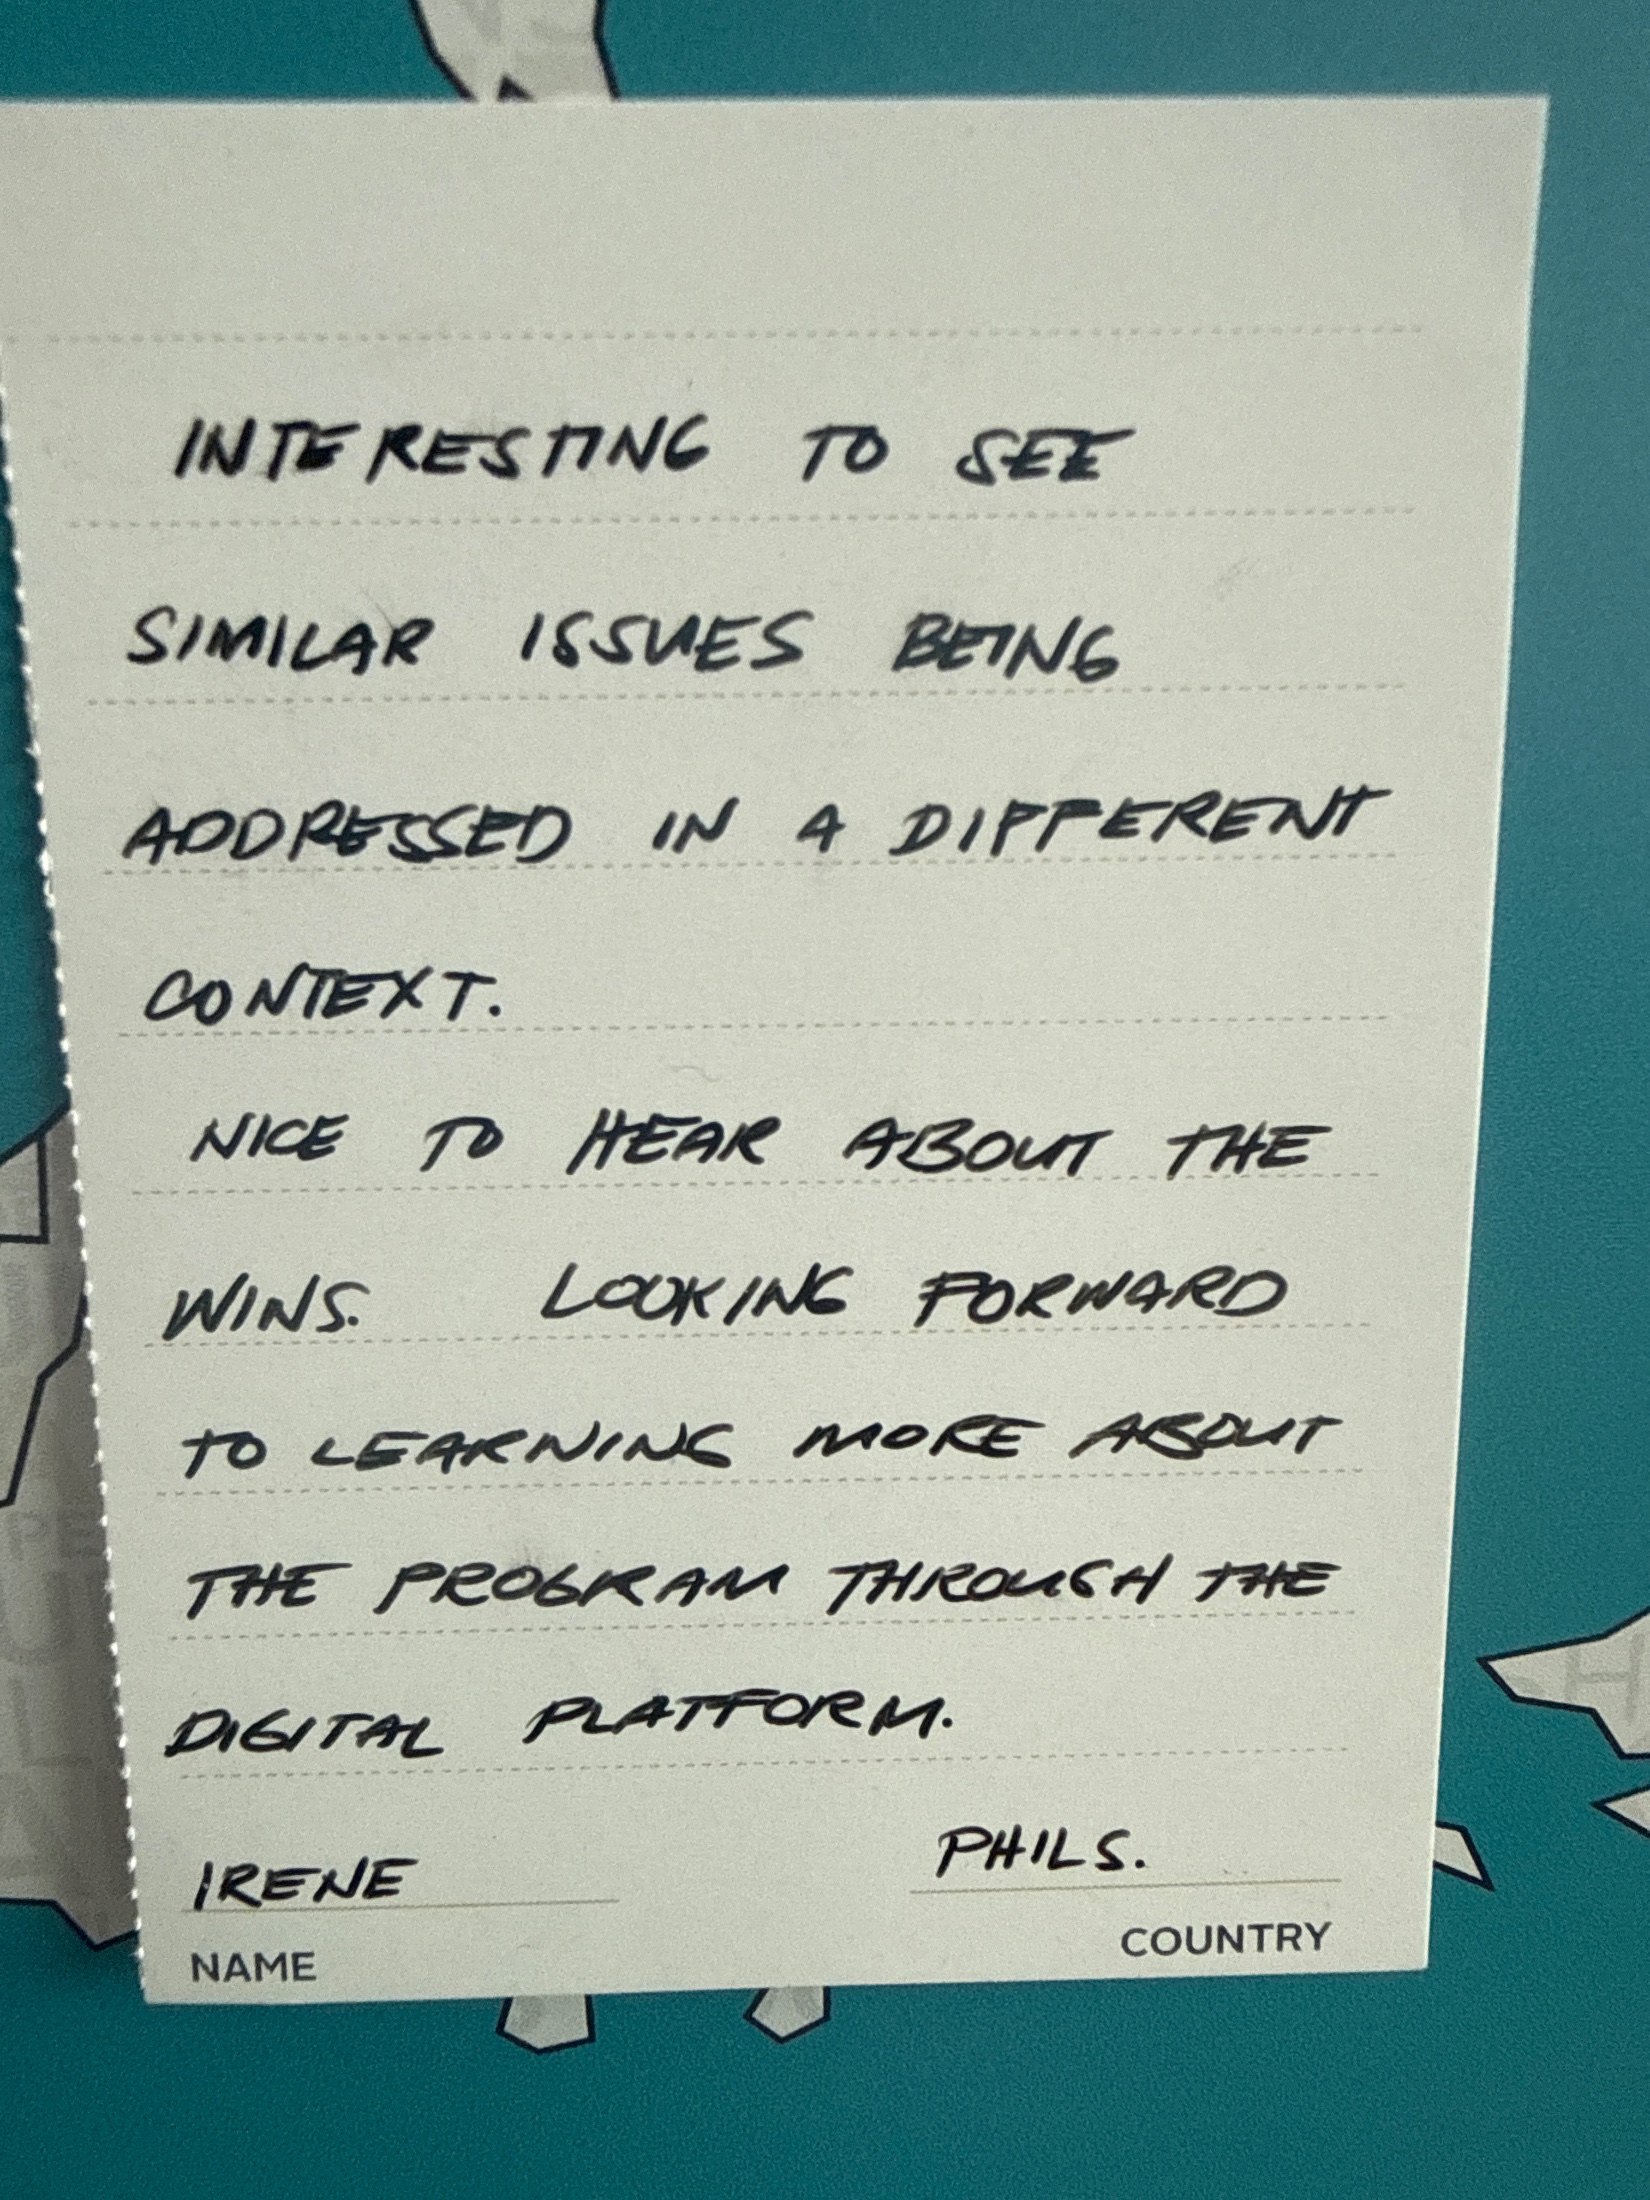 INTERESTING TO SEE
SIMILAR ISSUES BEING
ADDRESSED IN A DIFFERENT
CONTEXT.
NICE TO HEAR ABOUT THE
WINS. LOOKING FORWARD
TO LEARNING MORE ABOUT
THE PROGRAM THROUGH THE
DIGITAL PLATFORM.
IRENE PHILS.
NAME COUNTRY